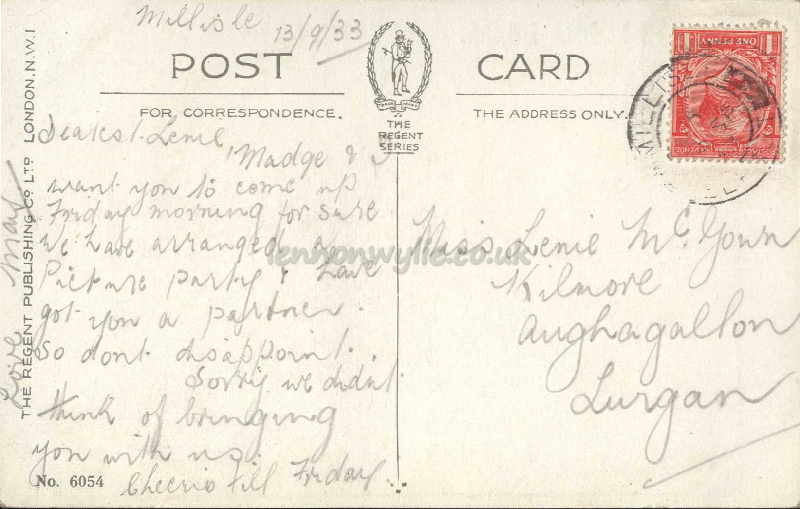 Millisle
13/9/33
POST CARD
FOR CORRESPONDENCE.
THE ADDRESS ONLY.
TRADE MARK
THE
REGENT
SERIES
Dearest Lenie,
Madge & I
want you to come up
Friday morning for sure
We have arranged a
Picture party & have
got you a partner.
So dont disappoint.
Sorry we didnt
think of bringing
you with us.
Cheerio till Friday
Love May
Miss Lenie McGown
Kilmore
Aughagallon
Lurgan
ONE PENNY
POSTAGE REVENUE
MILLISLE
THE REGENT PUBLISHING CO LTD LONDON. N.W.1
No. 6054
lennonwylie.co.uk